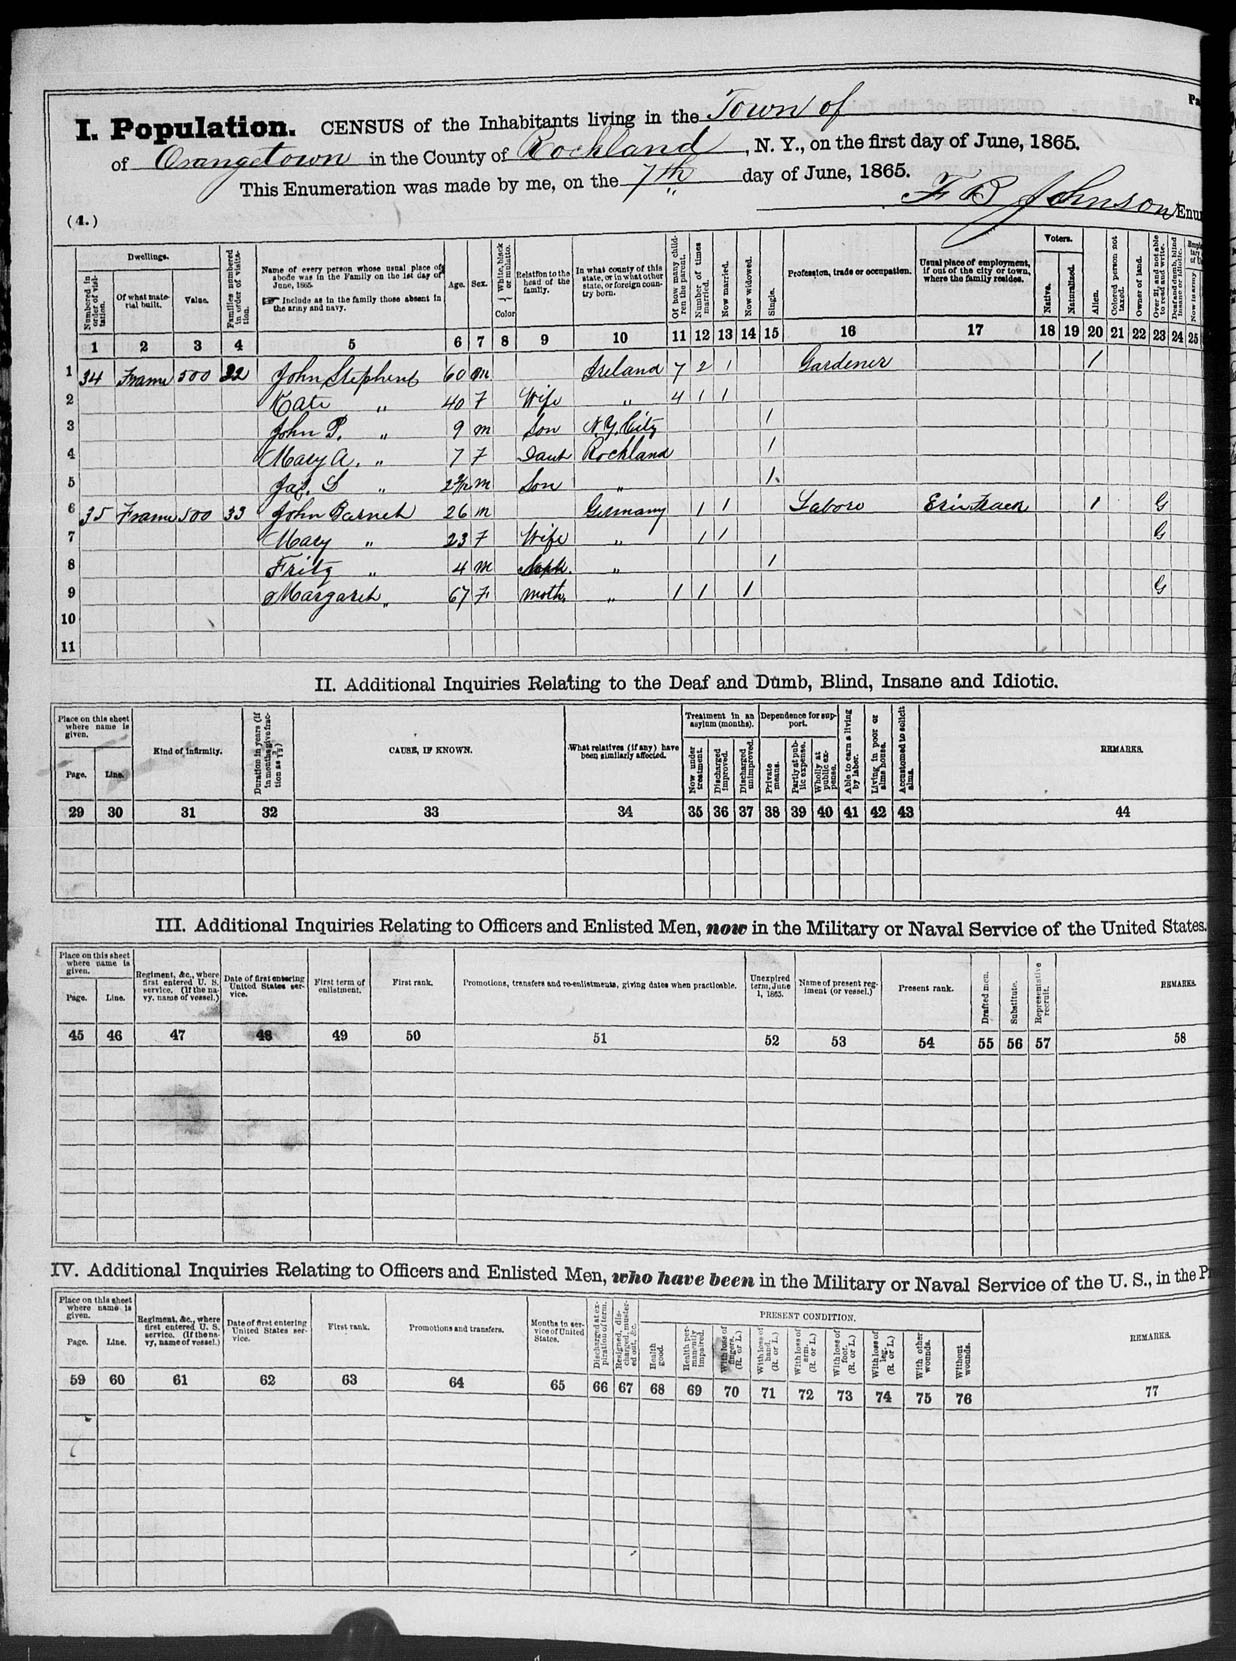 Pa
I. Population. CENSUS of the Inhabitants living in the Town of
of Orangetown in the County of Rockland, N. Y., on the first day of June, 1865.
This Enumeration was made by me, on the 7th day of June, 1865.
F B Johnson Enu
(4.)
Dwellings. Voters.
Numbered in order of visitation. Of what material built. Value. Families numbered in order of visitation. Name of every person whose usual place of abode was in the Family on the 1st day of June, 1865. ☞ Include as in the family those absent in the army and navy. Age. Sex. White, black or mulatto. Color Relation to the head of the family. In what county of this state, or in what other state, or foreign country born. Of how many children the parent. Number of times married. Now married. Now widowed. Single. Profession, trade or occupation. Usual place of employment, if out of the city or town, where the family resides. Native. Naturalized. Alien. Colored person not taxed. Owner of land. Over 21, and not able to read and write. Deaf and dumb, blind insane or idiotic. Now in army
1 2 3 4 5 6 7 8 9 10 11 12 13 14 15 16 17 18 19 20 21 22 23 24 25
1 34 Frame 500 32 John Stephens 60 m Ireland 7 2 1 Gardener 1
2 Kate " 40 F Wife " 4 1 1
3 John P. " 9 m Son N.Y. City 1
4 Mary A. " 7 F Daut Rockland 1
5 Jas. " m Son " 1
6 35 Frame 500 33 John 26 m Germany 1 1 Labore Erie 1 G
7 Mary " 23 F Wife " 1 1 G
8 Fritz " 4 m " 1
9 Margaret " 67 F moth. " 1 1 1 G
10
11
II. Additional Inquiries Relating to the Deaf and Dumb, Blind, Insane and Idiotic.
Place on this sheet where name is given. Treatment in an asylum (months). Dependence for support.
Page. Line. Kind of infirmity. Duration in years (if in months give fraction as 3/12) CAUSE, IF KNOWN. What relatives (if any) have been similarly affected. Now under treatment. Discharged improved. Discharged unimproved. Private means. Partly at public expense. Wholly at public expense. Able to earn a living by labor. Living in poor or alms house. Accustomed to solicit alms. REMARKS.
29 30 31 32 33 34 35 36 37 38 39 40 41 42 43 44
III. Additional Inquiries Relating to Officers and Enlisted Men, now in the Military or Naval Service of the United States.
Place on this sheet where name is given. Page. Line. Regiment, &c., where first entered U. S. service. (If the navy, name of vessel.) Date of first entering United States service. First term of enlistment. First rank. Promotions, transfers and re-enlistments, giving dates when practicable. Unexpired term, June 1, 1865. Name of present regiment (or vessel.) Present rank. Drafted men. Substitute. Representative recruit. REMARKS.
45 46 47 48 49 50 51 52 53 54 55 56 57 58
IV. Additional Inquiries Relating to Officers and Enlisted Men, who have been in the Military or Naval Service of the U. S., in the P
Place on this sheet where name is given. PRESENT CONDITION.
Page. Line. Regiment, &c., where first entered U. S. service. (If the navy, name of vessel.) Date of first entering United States service. First rank. Promotions and transfers. Months in service of United States. Discharged at expiration of term. Resigned, discharged, mustered out, &c. Health good. Health permanently impaired. With loss of fingers. (R. or L.) With loss of hand. (R. or L.) With loss of arm. (R. or L.) With loss of foot. (R. or L.) With loss of leg. (R. or L.) With other wounds. Without wounds. REMARKS.
59 60 61 62 63 64 65 66 67 68 69 70 71 72 73 74 75 76 77